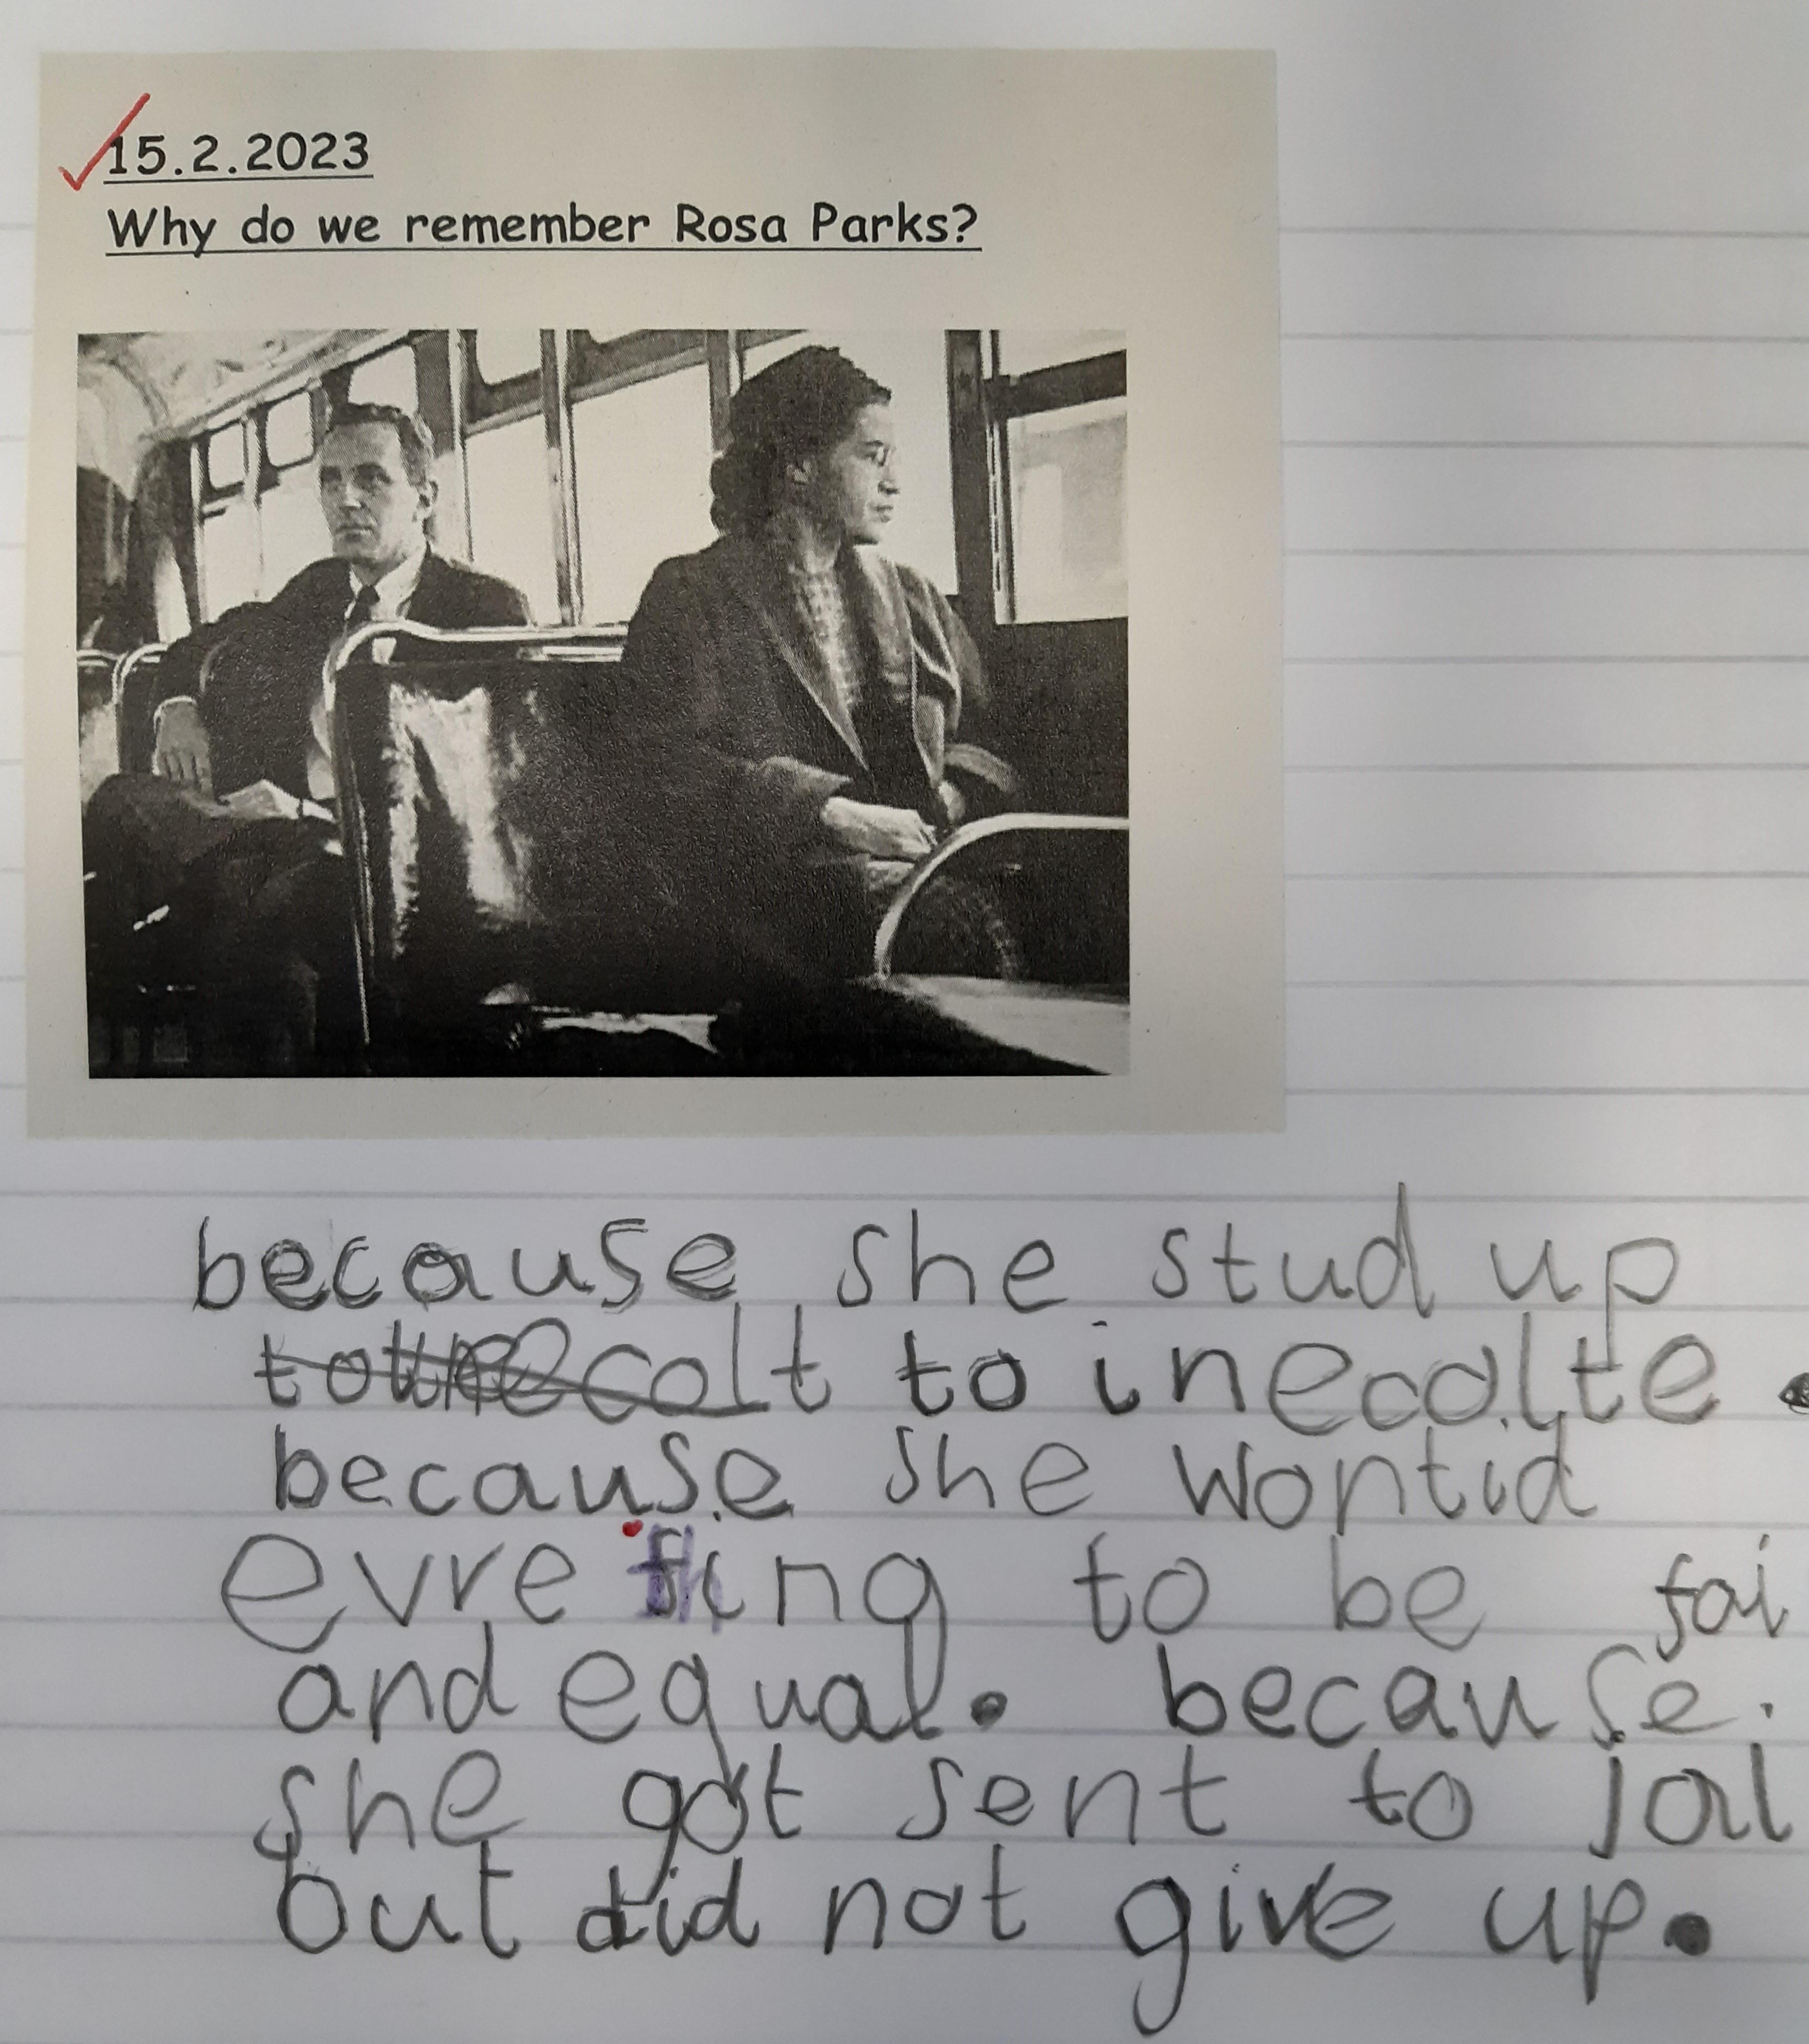 15.2.2023
Why do we remember Rosa Parks?
because she stud up
to inecolte.
because she wontid
evre thing to be fai
and equal. because
she got sent to jail
but did not give up.